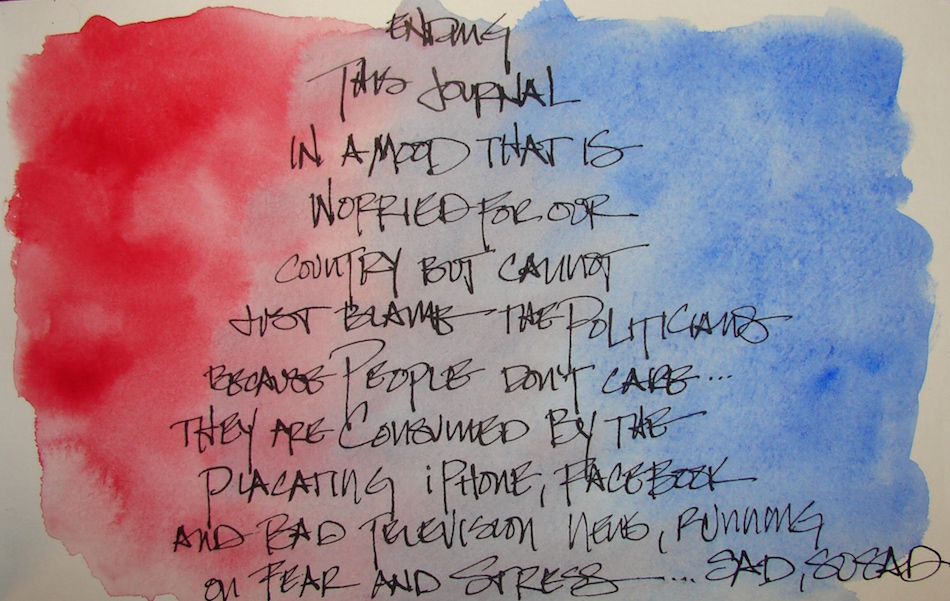 ENDING
THIS JOURNAL
IN A MOOD THAT IS
WORRIED FOR OUR
COUNTRY BUT CANNOT
JUST BLAME THE POLITICIANS
BECAUSE PEOPLE DON'T CARE...
THEY ARE CONSUMED BY THE
PLACATING iPHONE, FACEBOOK
AND BAD TELEVISION NEWS, RUNNING
ON FEAR AND STRESS ... SAD, SO SAD